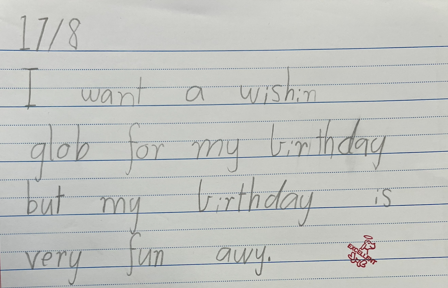 17/8
I want a wishin
glob for my birthday
but my birthday is
very fun awy.